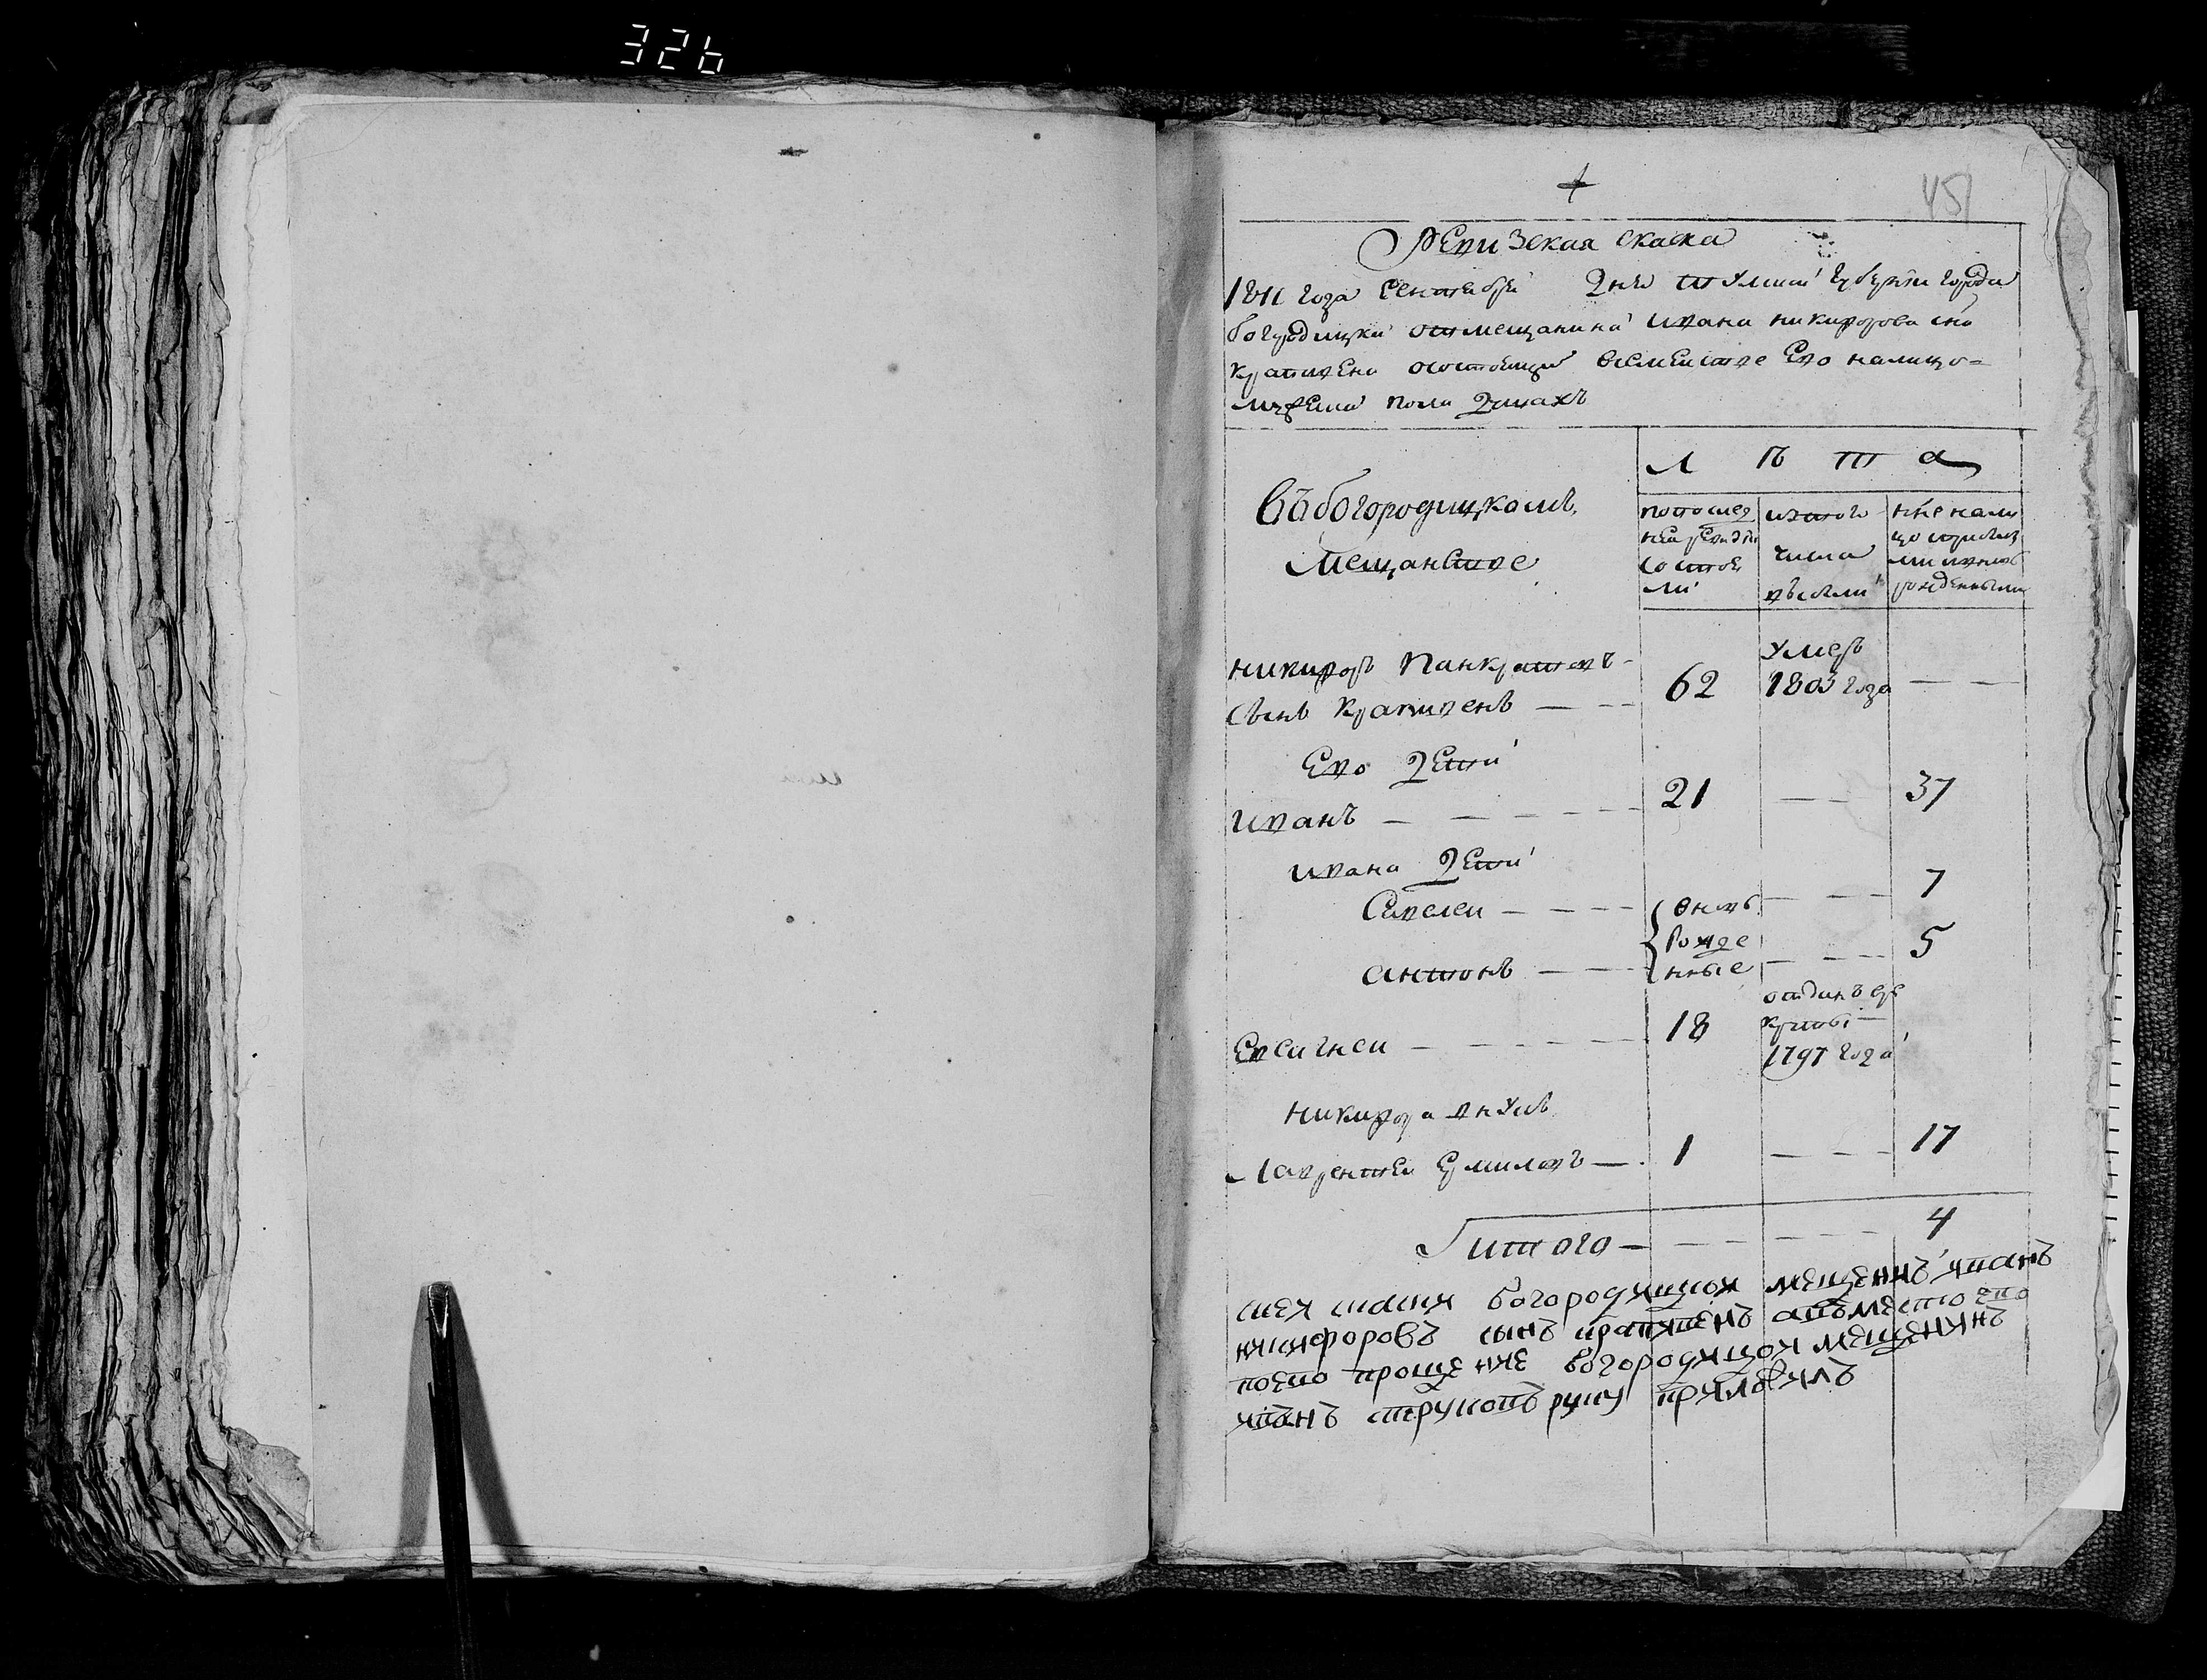 326
451
Ревизская скаска
1811 года сентебря дня Тулской губернии города
богородицка отмещанина ивана никифорова сна
крапивена осостоящих всемействе Ево налицо=
мужеска пола душахъ
Въбогородицкомъ
Мещанстве
Л ѣ т а
попослед
ней ревизии
состоя
ли
изтого
числа
выбыли
нне нали
цо
рожденными
никифоръ Панкратовъ
сынъ Крапивенъ
62
умеръ
1803 года
Ево Дети
иванъ
21
37
ивана Дети
Савелеи
7
антонъ
вновь
рожде
нные
5
Евсигнеи
18
отданъ врѣ
круты
1797 года
никифора внукъ
Лаврентеи Ермиловъ
1
17
итого
4
богородицкои мещенинъ иванъ
никифоровъ сынъ крапивенъ авъместо ево
поево прошение богородицкои мещенинъ
иванъ струковъ руку приложилъ